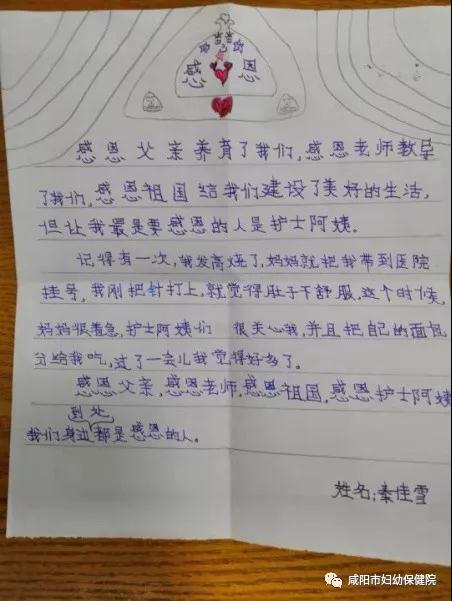 感恩
感恩父亲养育了我们,感恩老师教导
了我们,感恩祖国给我们建设了美好的生活,
但让我最是要感恩的人是护士阿姨。
记得有一次,我发高烧了,妈妈就把我带到医院
挂号,我刚把针打上,就觉得肚子不舒服,这个时候,
妈妈很着急,护士阿姨们 很关心我,并且把自己的面包
分给我吃,过了一会儿我觉得好多了。
感恩父亲,感恩老师,感恩祖国,感恩护士阿姨
到处
我们身边都是感恩的人。
姓名:秦佳雪
咸阳市妇幼保健院